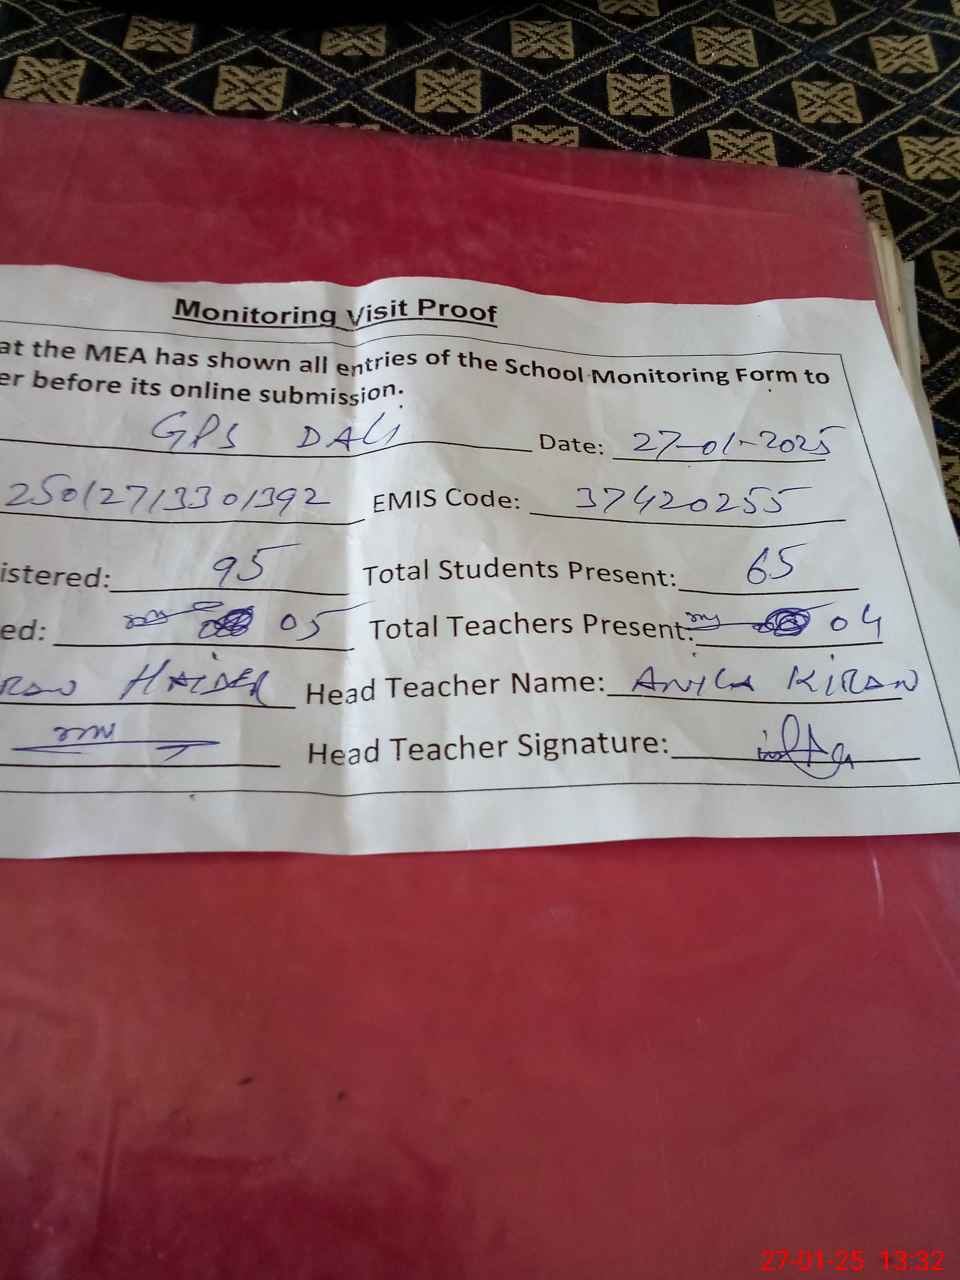 Monitoring Visit Proof
at the MEA has shown all entries of the School Monitoring Form to
er before its online submission.
GPS DALI Date: 27-01-2025
25012713301392 EMIS Code: 37420255
istered: 95 Total Students Present: 65
ed: 05 Total Teachers Present: 04
HAIDER Head Teacher Name: ANILA KIRAN
Head Teacher Signature:
27-01-25 13:32